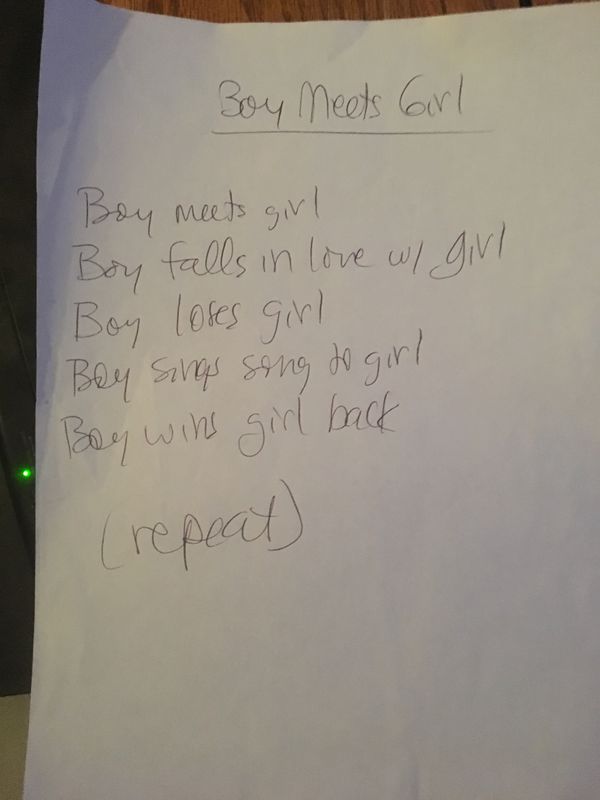 Boy Meets Girl
Boy meets girl
Boy falls in love w/ girl
Boy loses girl
Boy sings song to girl
Boy wins girl back
(repeat)